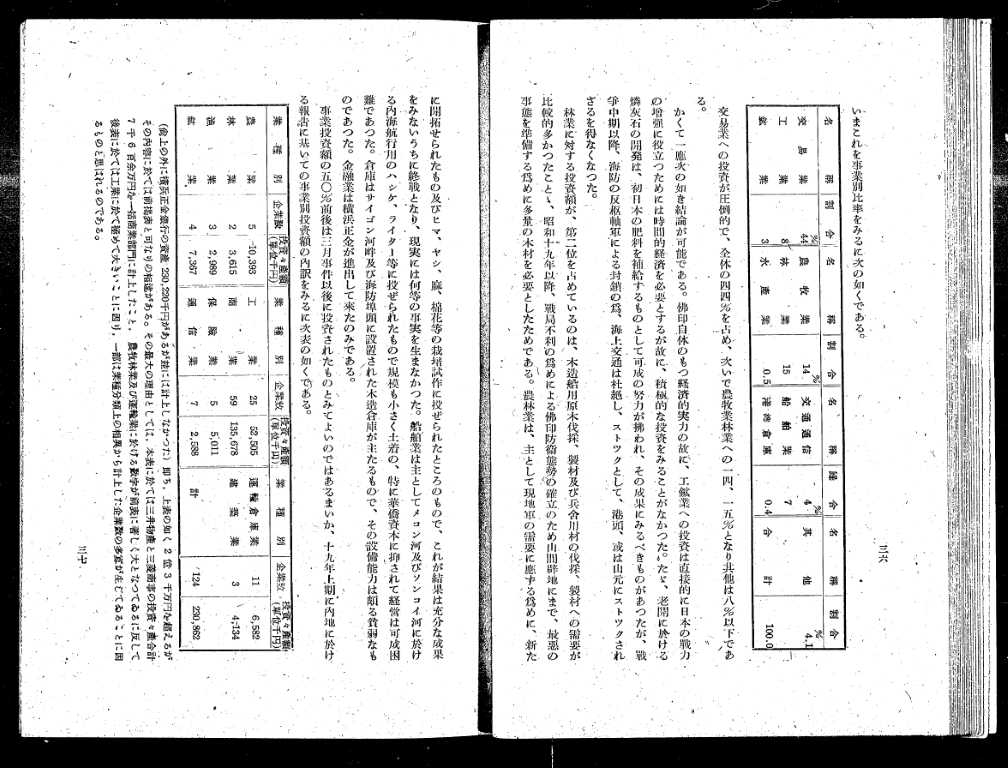 いまこれを事業別比率をみるに次の如くである。
名稱 割合 名稱 割合 名稱 割合 名稱 割合
交易業 44% 農牧業 14% 交通通信 4% 其他 4.1%
工業 8 林業 15 船舶業 7
鑛業 3 水產業 0.5 港灣倉庫 0.4 合計 100.0
交易業への投資が圧倒的で、全体の四四％を占め、次いで農牧業林業への一四、一五％となり其他は八％以下であ
る。
かくて一應次の如き結論が可能である。佛印自体のもつ経済的実力の故に、工鑛業への投資は直接的に日本の戰力
の増强に役立つためには時間的経済を必要とするが故に、積極的な投資をみることがなかつた。たゞ、老開に於ける
燐灰石の開発は、初日本の肥料を補給するものとして可成の努力が拂われ、その成果にみるべきものがあつたが、戰
爭中期以降、海防の反枢軸軍による封鎖の爲、海上交通は杜絶し、ストツクとして、港頭、或は山元にストツクされ
ざるを得なくなつた。
林業に対する投資額が、第二位を占めているのは、木造船用原木伐採、製材及び兵舍用材の伐採、製材への需要が
比較的多かつたことゝ、昭和十九年以降、戰局不利の爲めによる佛印防衛態勢の確立のため山間畔地にまで、最悪の
事態を準備する爲めに多量の木材を必要としたためである。農林業は、主として現地軍の需要に應ずる爲めに、新た
三六
に開拓せられたもの及びヒマ、ヤシ、麻、棉花等の栽培試作に投ぜられたところのもので、これが結果は充分な成果
をみないうちに終戰となり、現実には何等の事実を生まなかつた。船舶業は主としてメコン河及びソンコイ河に於け
る内海航行用のハシケ、ライター等に投ぜられたもので規模も小さく土着の、特に華僑資本に抑されて経営は可成困
難であつた。倉庫はサイゴン河畔及び海防埠頭に設置された木造倉庫が主たるもので、その設備能力は頗る貧弱なも
のであつた。金融業は横浜正金が進出して來たのみである。
事業投資額の五〇％前後は三月事件以後に投資されたものとみてよいのではあるまいか、十九年上期に内地に於け
る報吿に基いての事業別投資額の内訳をみるに次表の如くである。
業種別 企業数 投資々產額(單位千円) 業種別 企業数 投資々產額(單位千円) 業種別 企業数 投資々產額(單位千円)
農業 5 10,393 工業 25 52,505 運輸倉庫業 11 6,582
林業 2 3,615 商業 59 135,678 建築業 3 4,134
漁業 3 2,989 保險業 5 5,011
鑛業 4 7,367 通信業 7 2,588 計 124 230,862
(尙上の外に横浜正金銀行の資產 230,220千円があるが玆には計上しなかつた) 即ち、上表の如く2億3千万円を超えるが
その内容に於ては前揭表と可なりの相違がある。その最大の理由としては、本表に於ては三井物產と三菱商事の投資々產合計
7千6百余万円が一括商業部門に計上したこと、農牧林業及び運輸業に於ける数字が前表に著しく大となつてゐるに反して
後表に於ては工業に於て極めて大きいことに因り、一部は業種分類上の相異から計上した企業数の多寡が生じてゐることに因
るものと思はれるのである。
三七